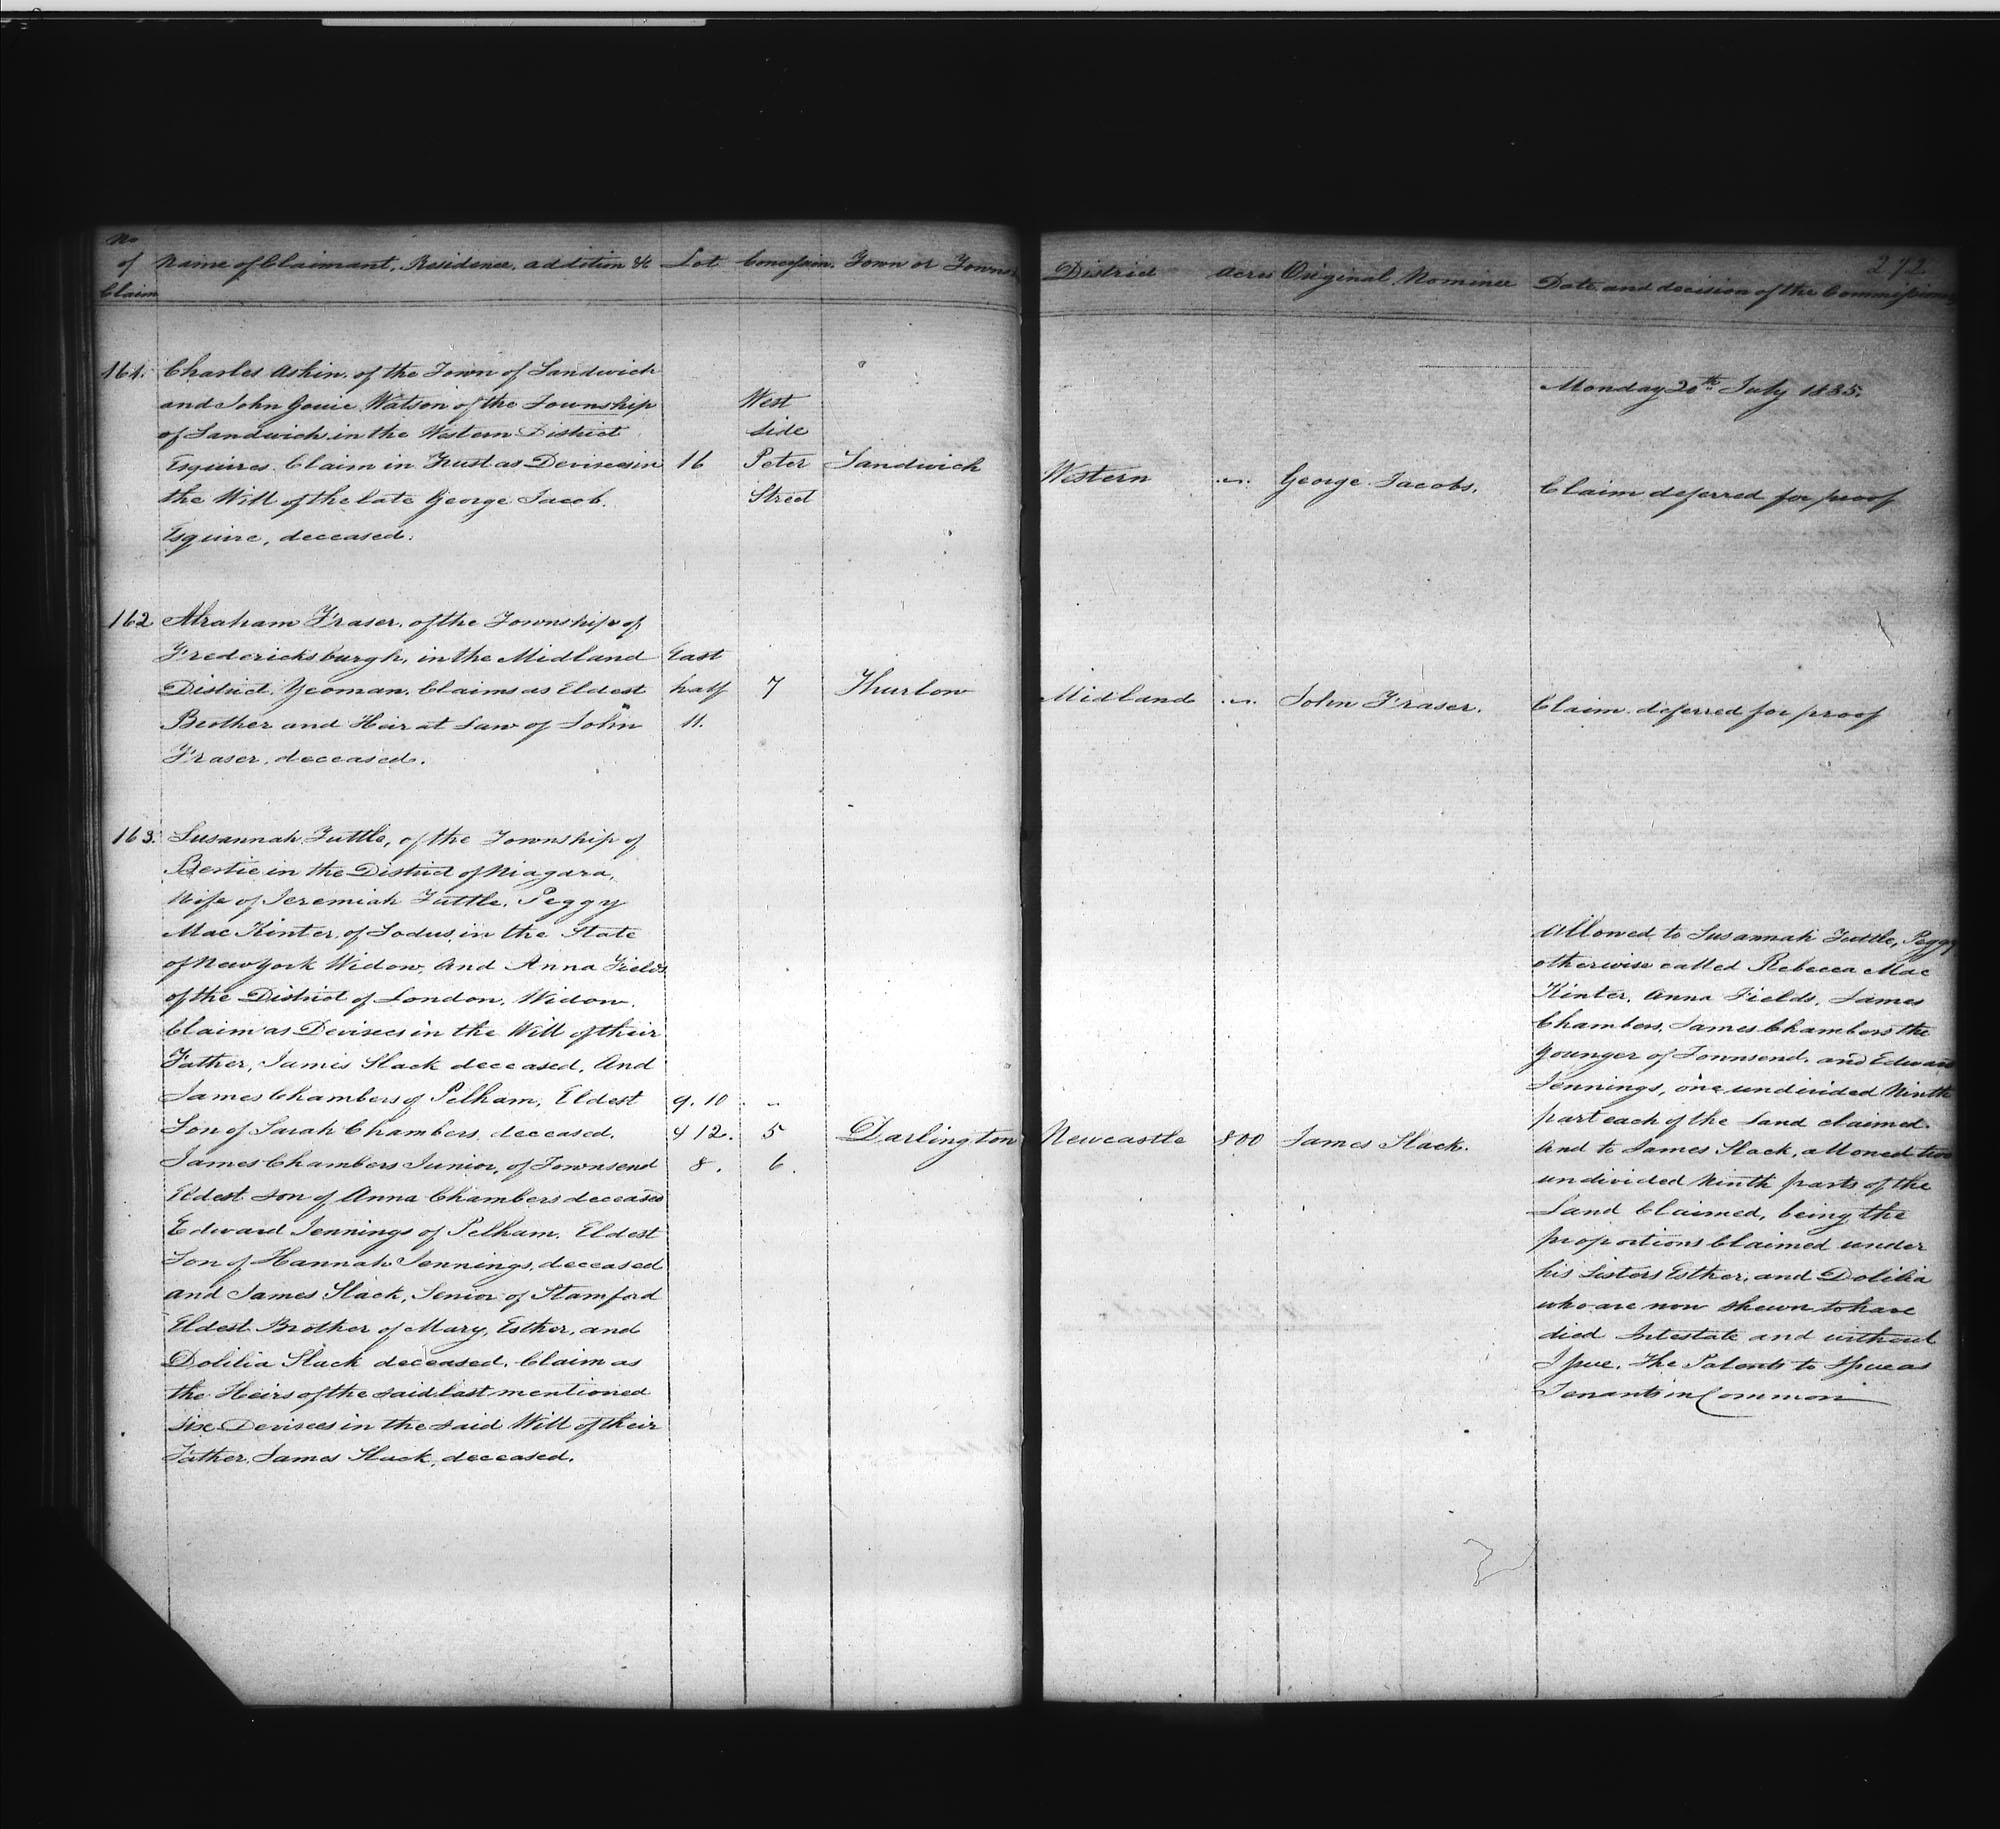 No
of Name of Claimant, Residence, addition &c Lot Concession Town or Towns
Claim
161. Charles Askin, of the Town of Sandwich
and John Gouie Watson of the Township West
of Sandwich in the Western District side
Esquires Claim in Trust as Devisees in 16 Peter Sandwich
the Will of the late George Jacob Street
Esquire, deceased.
162 Abraham Fraser, of the Township of
Fredericksburgh, in the Midland East
District, Yeoman, Claims as Eldest half 7 Thurlow
Brother and Heir at Law of John 11.
Fraser, deceased.
163. Susannah Tuttle, of the Township of
Bertie in the District of Niagara,
Wife of Jeremiah Tuttle, Peggy
Mac Kinter, of Sodus, in the State
of New York Widow, And Anna Fields
of the District of London, Widow,
Claim as Devisees in the Will of their
Father, James Slack deceased, And
James Chambers of Pelham, Eldest 9. 10 "
Son of Sarah Chambers deceased, & 12. 5 Darlington
James Chambers Junior, of Townsend 8. 6.
Eldest son of Anna Chambers deceased
Edward Jennings of Pelham, Eldest
Son of Hannah Jennings, deceased
and James Slack, Senior of Stamford
Eldest Brother of Mary, Esther, and
Dolilia Slack deceased, Claim as
the Heirs of the said last mentioned
six Devisees in the said Will of their
Father, James Slack, deceased.
272
District Acres Original Nominee Date and decision of the Commissioners
Monday 20th July 1835.
Western " George Jacobs. Claim deferred for proof
Midland " John Fraser. Claim deferred for proof
Allowed to Susannah Tuttle, Peggy
otherwise called Rebecca Mac
Kinter, Anna Fields, James
Chambers, James Chambers the
Younger of Townsend, and Edward
Jennings, one undivided Ninth
part each of the Land claimed.
Newcastle 800 James Slack. And to James Slack, allowed two
undivided Ninth parts of the
Land Claimed, being the
proportions Claimed under
his Sisters Esther, and Dolilia
who are now shewn to have
died Intestate and without
Issue. The Patents to Issue as
Tenants in Common